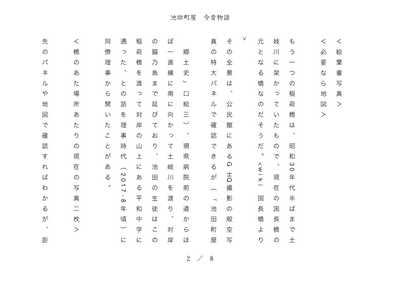 池田町屋　今昔物語
＜絵葉書写真＞
＜必要なら地図＞
もう一つの稲荷橋は、昭和30年代半ばまで土
岐川に架かっていたもので、現在の国長橋の
元となる橋なのだそうだ。<Wiki　国長橋より
>
その全景は、公民館にあるGHQ撮影の航空写
真の特大パネルで確認できるが（「池田町屋
郷土史」口絵三）、現県病院前の道からほ
ぼ一直線に南に向かって土岐川を渡り、対岸
の脇乃島まで延びており、池田の生徒はこの
稲荷橋を渡って対岸の山上にある平和中学に
通った、との話を理事時代（2017-8年頃）に
同僚理事から聞いたことがある。
＜橋のあた場所あたりの現在の写真二枚＞
先のパネルや地図で確認すればわかるが、距
2　／　8